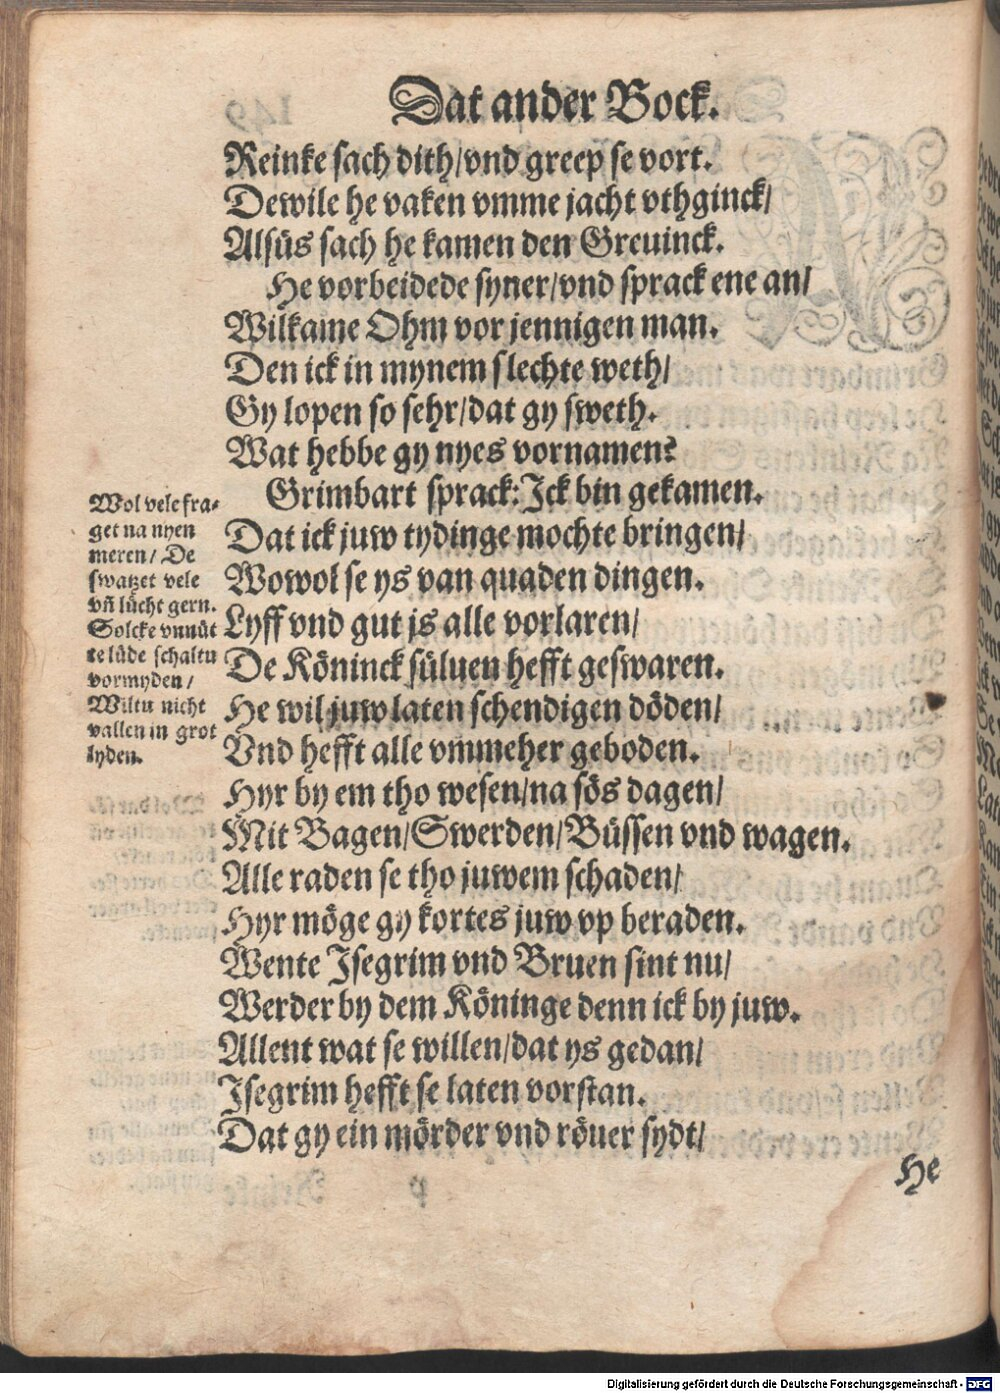 Dat ander Bock.
Reinke sach dith/vnd greep se vort.
Dewile he vaken vmme jacht vthginck/
Alsüs sach he kamen den Greuinck.
He vorbeidede syner/vnd sprack ene an/
Wilkame Ohm vor jennigen man.
Den ick in mynem slechte weth/
Gy lopen so sehr/dat gy sweth.
Wat hebbe gy nyes vornamen?
Grimbart sprack: Ick bin gekamen.
Dat ick juw tydinge mochte bringen/
Wowol se ys van quaden dingen.
Lyff vnd gut js alle vorlaren/
De Köninck süluen hefft geswaren.
He wil juw laten schendigen döden/
Vnd hefft alle vmmeher geboden.
Hyr by em tho wesen/na sös dagen/
Mit Bagen/Swerden/Büssen vnd wagen.
Alle raden se tho juwem schaden/
Hyr möge gy kortes juw vp beraden.
Wente Isegrim vnd Bruen sint nu/
Werder by dem Köninge denn ick by juw.
Allent wat se willen/dat ys gedan/
Isegrim hefft se laten vorstan.
Dat gy ein mörder vnd röuer sydt/
He
Wol vele fra-
get na nyen
meren/ De
swatzet vele
vñ lücht gern.
Solcke vnnüt
te lüde schaltu
vormyden/
Wiltu nicht
vallen in grot
lyden.
Digitalisierung gefördert durch die Deutsche Forschungsgemeinschaft - DFG